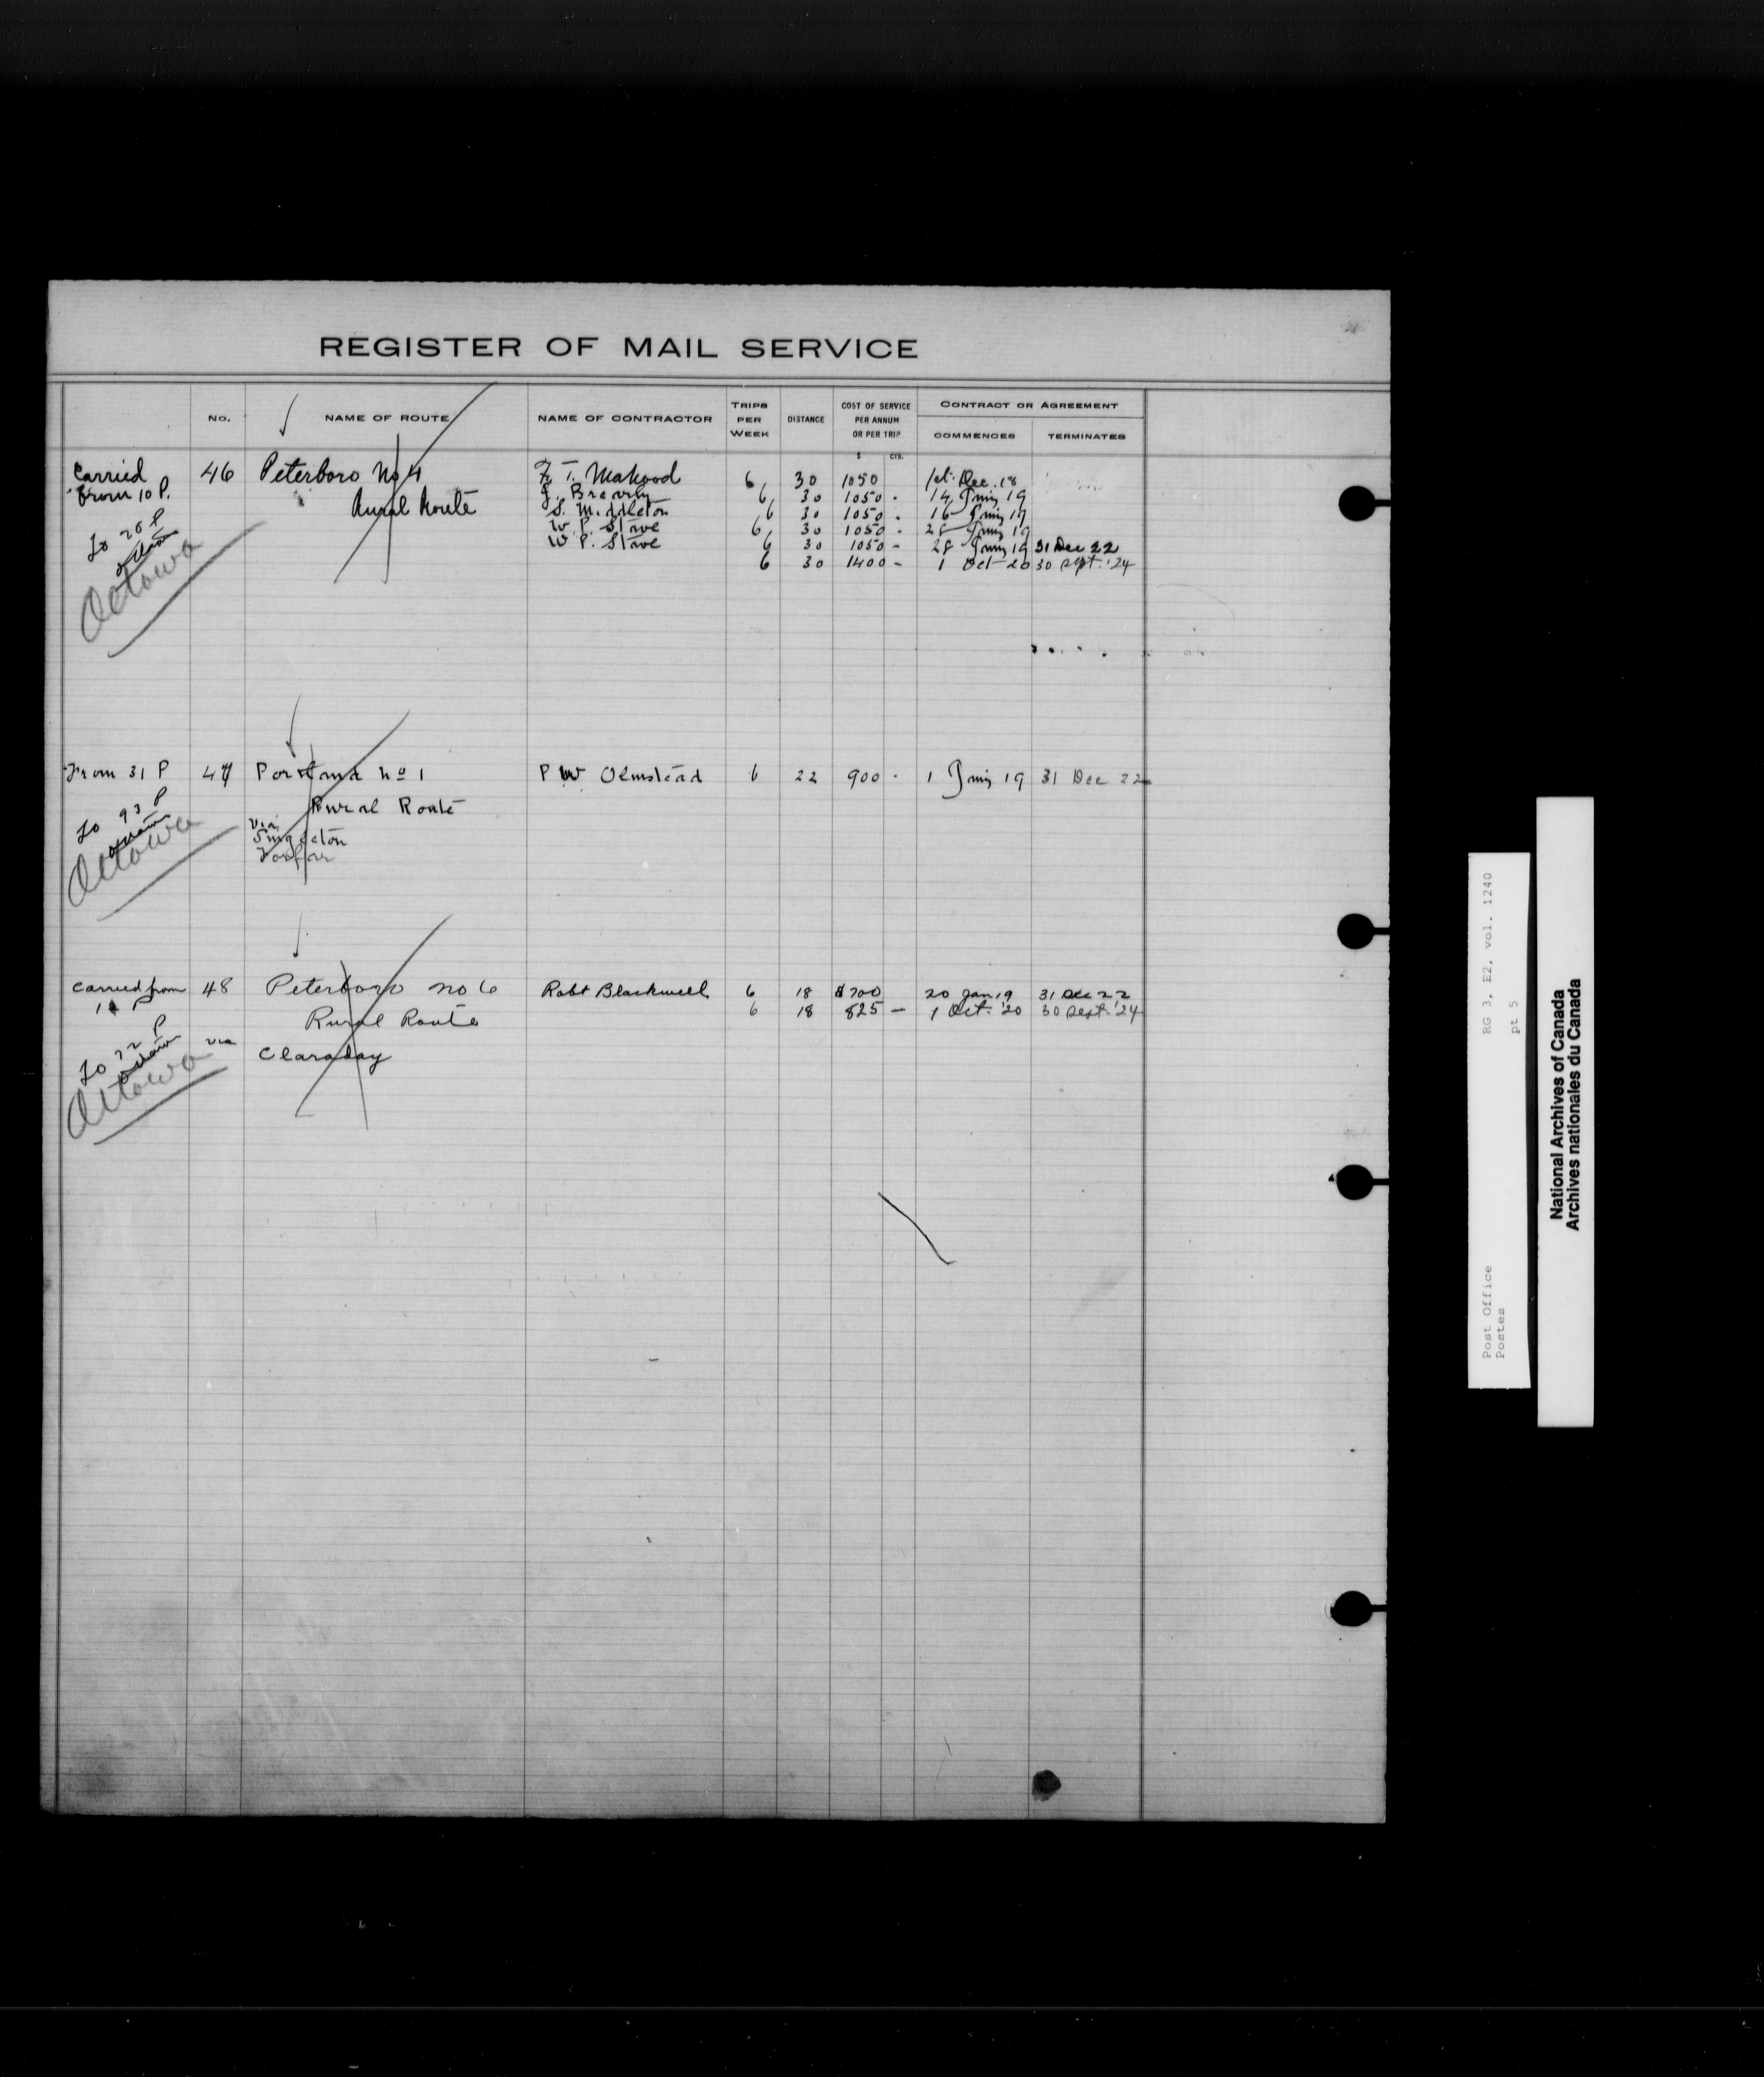 REGISTER OF MAIL SERVICE
No. NAME OF ROUTE NAME OF CONTRACTOR TRIPS PER WEEK DISTANCE COST OF SERVICE PER ANNUM OR PER TRIP CONTRACT OR AGREEMENT
COMMENCES TERMINATES
$ CTS.
Carried 46 Peterboro No 4 F. T. Makood 6 30 1050 1st Dec. 18
from 10 P. J. Brearly 6 30 1050 - 14 Jany 19
Rural Route S. Middleton 6 30 1050 . 16 Jany 19
To 26 P W. P. Stave 6 30 1050 - 28 Jany 19
W. P. Stave 6 30 1050 - 28 Jany 19 31 Dec 22
Ottawa 6 30 1400 - 1 Oct 20 30 Sept. '24
From 31 P 47 Portland No 1 P W Olmstead 6 22 900 . 1 Jany 19 31 Dec 22
Rural Route
To 93 P via
Ottawa Singleton
Forfar
Carried from 48 Peterboro no 6 Robt Blackwell 6 18 $700 20 Jan 19 31 Dec 22
6 18 825 - 1 Oct. '20 30 Sept. '24
Rural Route
To 72 P via
Ottawa Claraday
Post Office RG 3, E2, vol. 1240
Postes pt 5
National Archives of Canada
Archives nationales du Canada